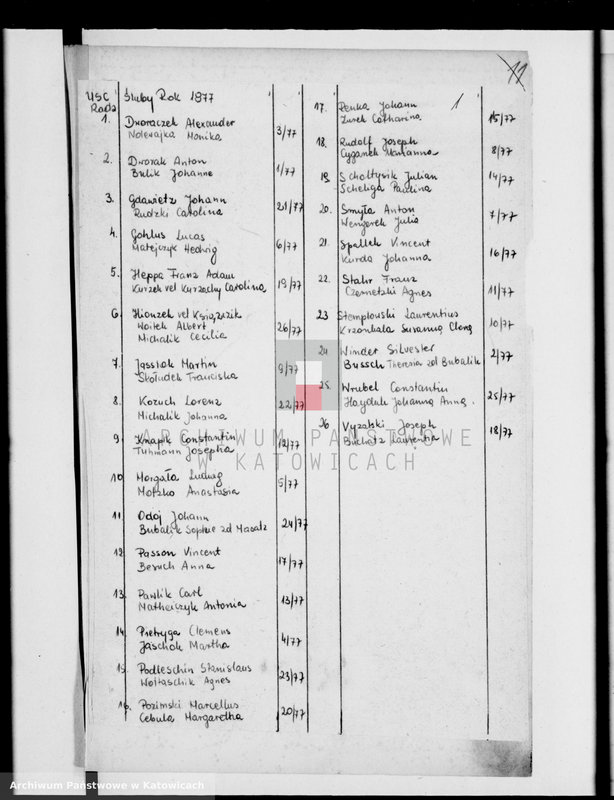 11
USC Śluby Rok 1877
Rada
1. Dworaczek Alexander
Nolewajka Monika 3/77
2. Dworak Anton
Bulik Johanne 1/77
3. Gdawietz Johann
Rudzki Carolina 21/77
4. Gohlus Lucas
Matejczyk Hedwig 6/77
5. Heppa Franz Adam
Kurzek vel Kurzachy Carolina 19/77
6. Hionzek vel Książazik
Woitek Albert
Michalik Cecilia 26/77
7. Jassiok Martin
Skoludek Franciska 9/77
8. Kozuch Lorenz
Michalik Johanna 22/77
9. Knapik Constantin
Tuhmann Josepha 12/77
10 Morgała Ludwig
Motzko Anastasia 5/77
11. Odoj Johann
Bubalik Sophie zd Macalz 24/77
12. Passon Vincent
Besuch Anna 17/77
13. Pawlik Carl
Matheiczyk Antonia 13/77
14. Pietryga Clemens
Jaschok Martha 4/77
15. Podleschin Stanislaus
Woitaschik Agnes 23/77
16. Pozimski Marcellus
Cebula Margaretha 20/77
17. Penka Johann 1
Zurek Catharina 15/77
18. Rudolf Joseph
Cyganek Marianna 8/77
19. Scholtysik Julian
Scheliga Paulina 14/77
20. Smyla Anton
Wengerek Julie 7/77
21. Spallek Vincent
Kurda Johanna 16/77
22. Stahr Franz
Czernetzki Agnes 11/77
23 Stemplouski Laurentius
Krzonkala Susanna Clara 10/77
24. Winder Silvester
Bussch Theresia zd Bubalik 2/77
25. Wrubel Constantin
Hayduk Johanna Anna. 25/77
26 Vyzalski Joseph
Buchatz Laurentia 18/77
ARCHIWUM PAŃSTWOWE
W KATOWICACH
Archiwum Państwowe w Katowicach